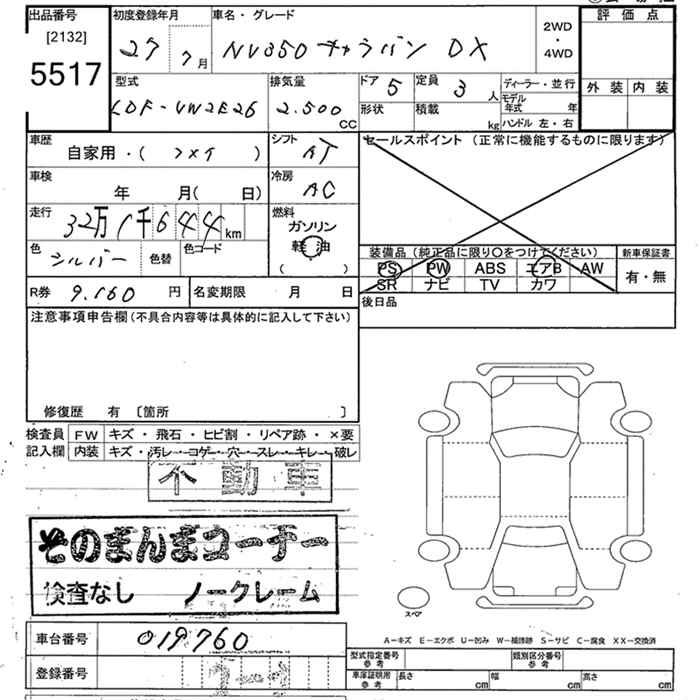 出品番号 初度登録年月 車名・グレード 2WD・4WD 評価点
[2132]
5517 27 7月 NV350 キャラバン DX
型式 排気量 ドア 定員 ディーラー・並行 外装 内装
LDF-VW2E26 2.500 CC 5 3人 モデル年式 年
形状 積載 kg ハンドル 左・右
車歴 自家用・( ) シフト AT セールスポイント (正常に機能するものに限ります)
車検 年 月( 日) 冷房 AC
走行 32万1千644km 燃料 ガソリン 軽油 ( )
色 シルバー 色替 色コード
装備品(純正品に限り〇をつけてください) 新車保証書
PS PW ABS エアB AW 有・無
SR ナビ TV カワ
R券 9.160円 名変期限 月 日 後日品
注意事項申告欄(不具合内容等は具体的に記入して下さい)
修復歴 有 〔箇所 〕
検査員 FW キズ・飛石・ヒビ割・リペア跡・×要
記入欄 内装 キズ・汚レ・コゲ・穴・スレ・キレ・破レ
不動車
そのまんまコーナー
検査なし ノークレーム
スペア
A-キズ E-エクボ U-凹み W-補修跡 S-サビ C-腐食 XX-交換済
車台番号 019760
型式指定番号 参考 類別区分番号 参考
登録番号
車庫証明用 参考 長さ cm 幅 cm 高さ cm